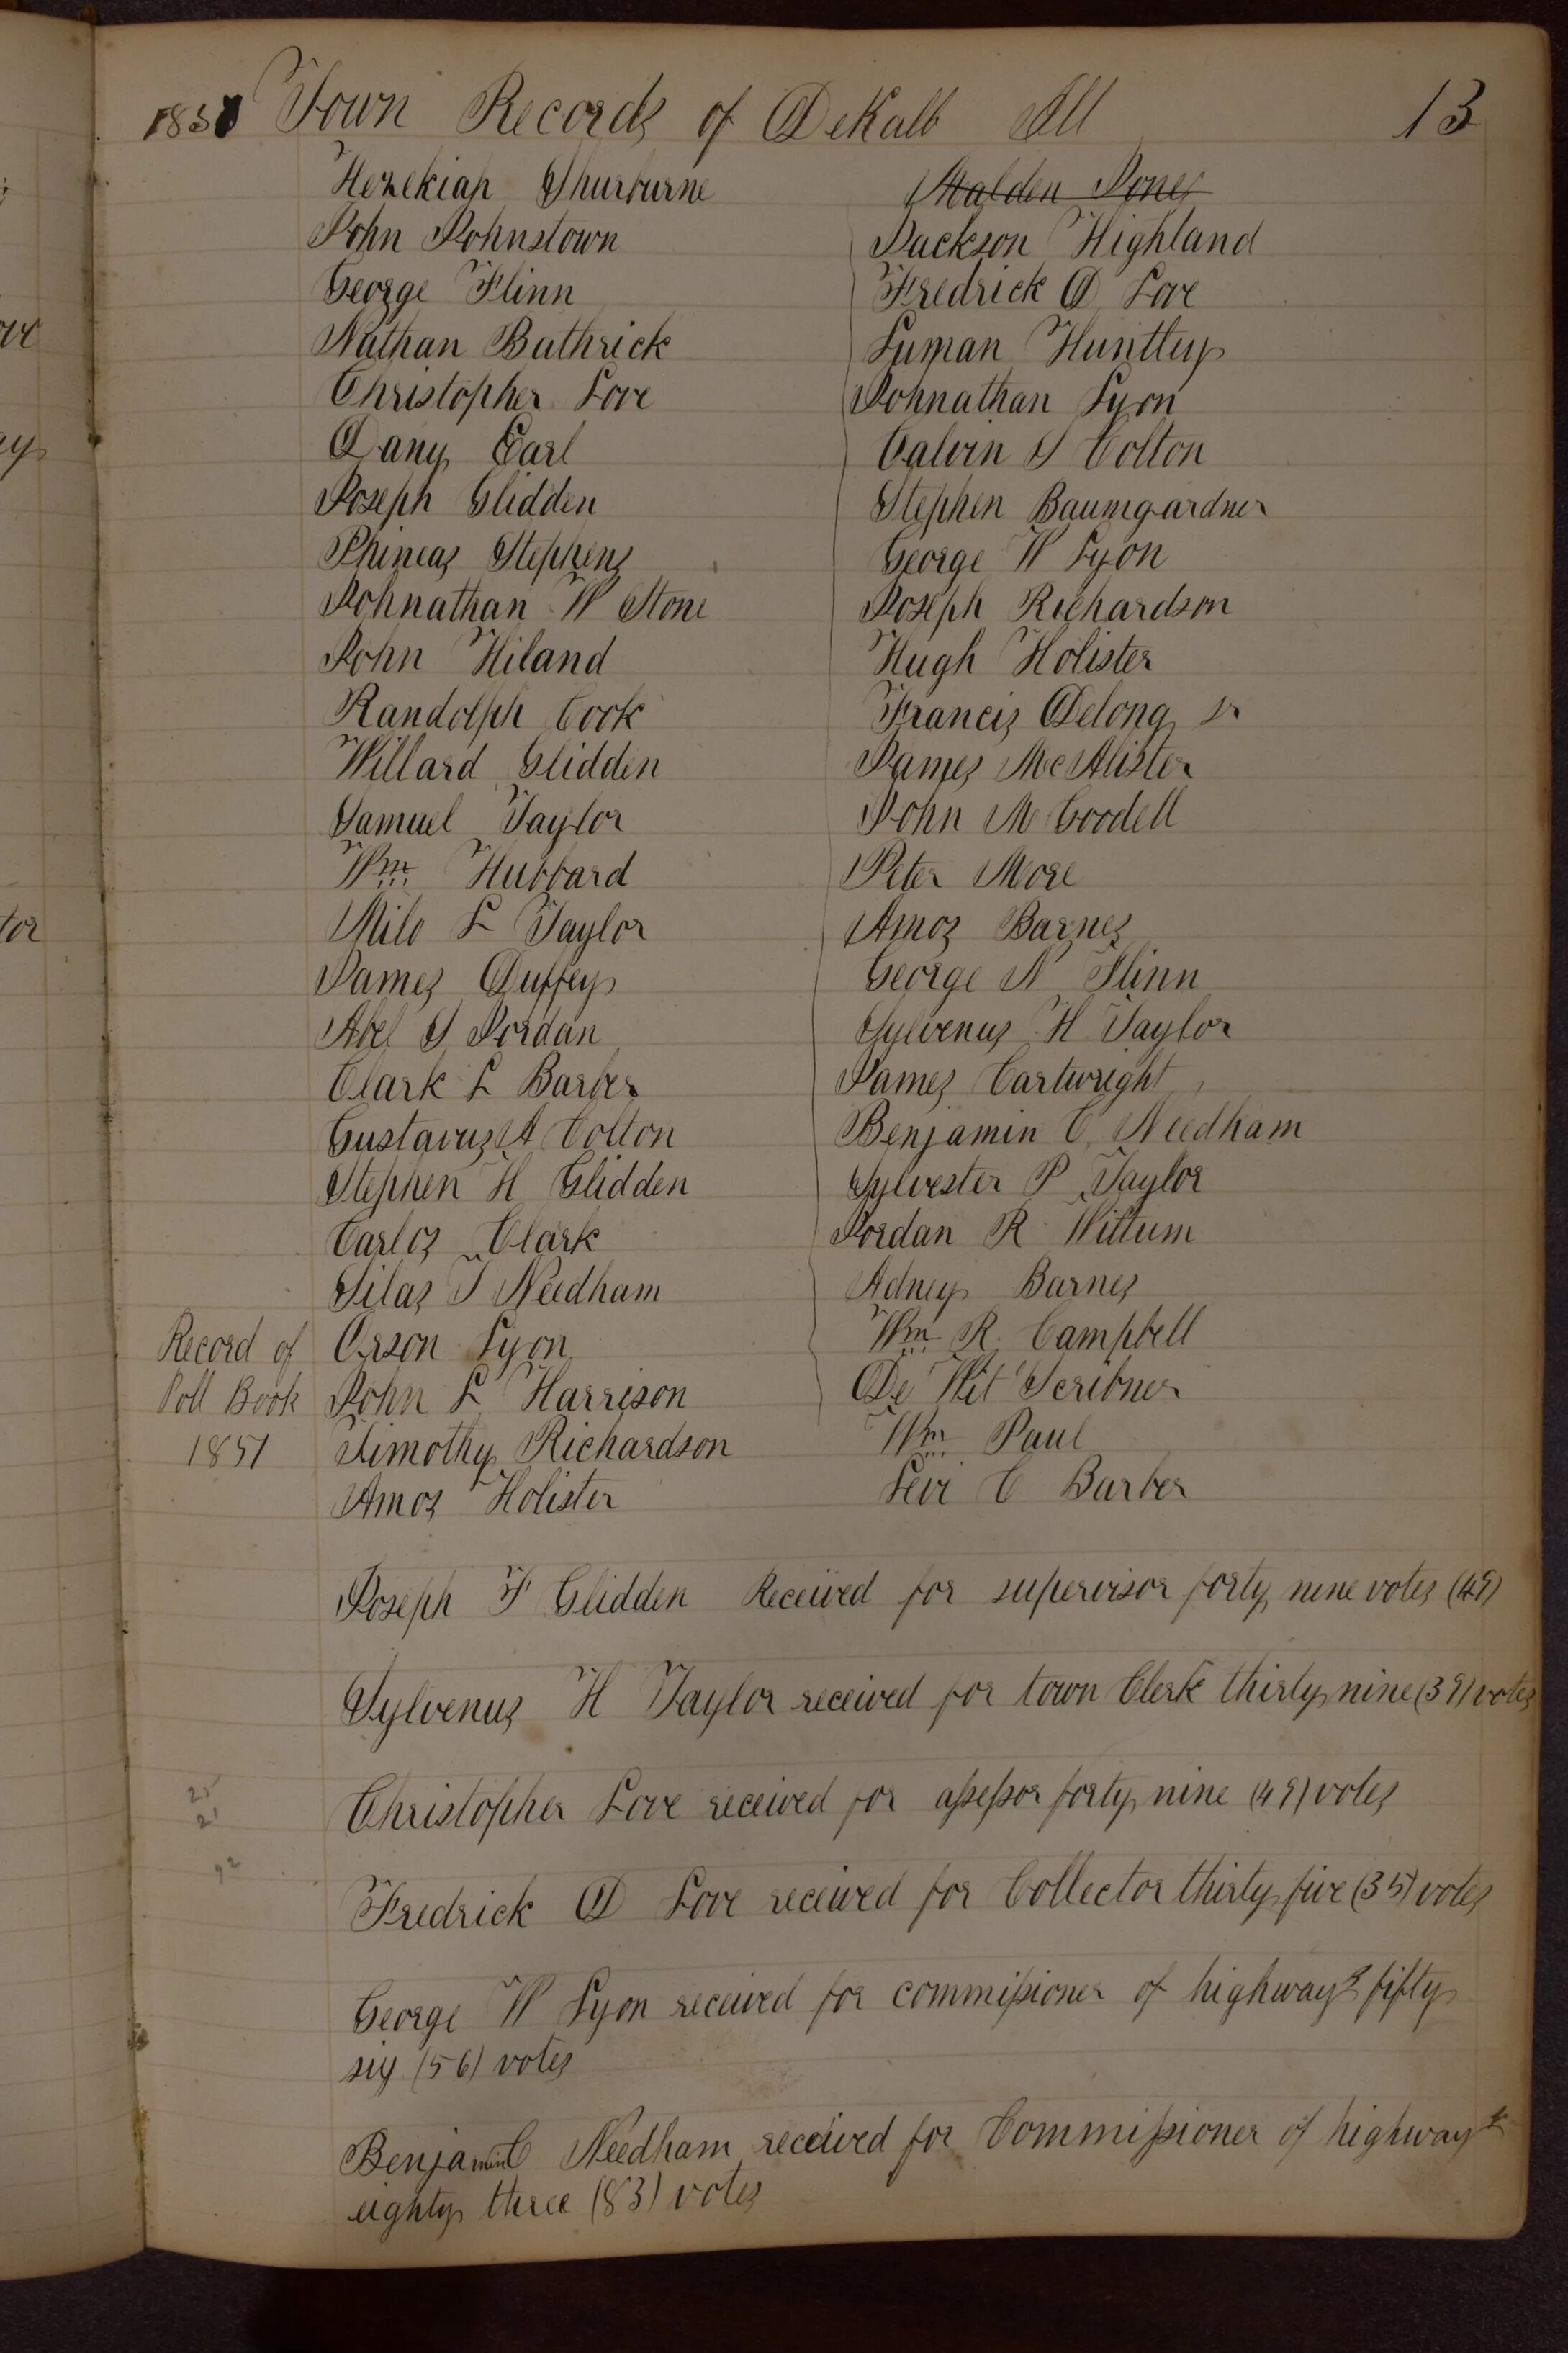 1851 Town Records of DeKalb Ill 13
Hezekiah Shurburne
John Johnstown
George Flinn
Nathan Bathrick
Christopher Love
Dany Earl
Joseph Glidden
Phineas Stephens
Johnathan W Stone
John Hiland
Randolph Cook
Willard Glidden
Samuel Taylor
Wm Hubbard
Milo L Taylor
James Duffey
Abel S Jordan
Clark L Barber
Gustavus A Colton
Stephen H Glidden
Carlos Clark
Silas T Needham
Orson Lyon
John L Harrison
Timothy Richardson
Amos Holister
Record of
Poll Book
1851
Malden Jones
Jackson Highland
Fredrick D Love
Luman Huntley
Johnathan Lyon
Calvin S Colton
Stephen Baumgardner
George W Lyon
Joseph Richardson
Hugh Holister
Francis Delong Sr
James McAlister
John M Goodell
Peter More
Amos Barnes
George N Flinn
Sylvenus H Taylor
James Cartwright
Benjamin C Needham
Sylvester P Taylor
Jordan R Wittum
Adney Barnes
Wm R. Campbell
De Wit Scribner
Wm Paul
Levi C Barber
Joseph F Glidden Received for supervisor forty nine votes (49)
Sylvenus H Taylor received for town Clerk thirty nine (39) votes
Christopher Love received for assessor forty nine (49) votes
Fredrick D Love received for Collector thirty five (35) votes
George W Lyon received for commissioner of highways fifty
six (56) votes
Benjamin C Needham received for Commissioner of highways
eighty three (83) votes